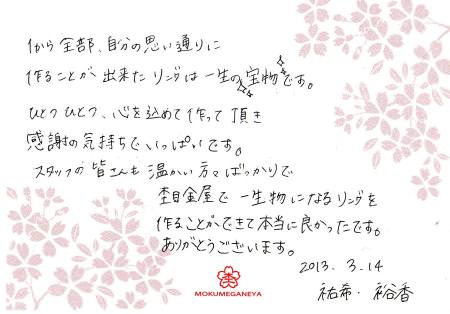 1から全部、自分の思い通りに
作ることが出来たリングは一生の宝物です。
ひとつひとつ、心を込めて作って頂き
感謝の気持ちでいっぱいです。
スタッフの皆さんも温かい方々ばっかりで
杢目金屋で一生物になるリングを
作ることができて本当に良かったです。
ありがとうございます。
2013. 3. 14
祐希・裕香
MOKUMEGANEYA